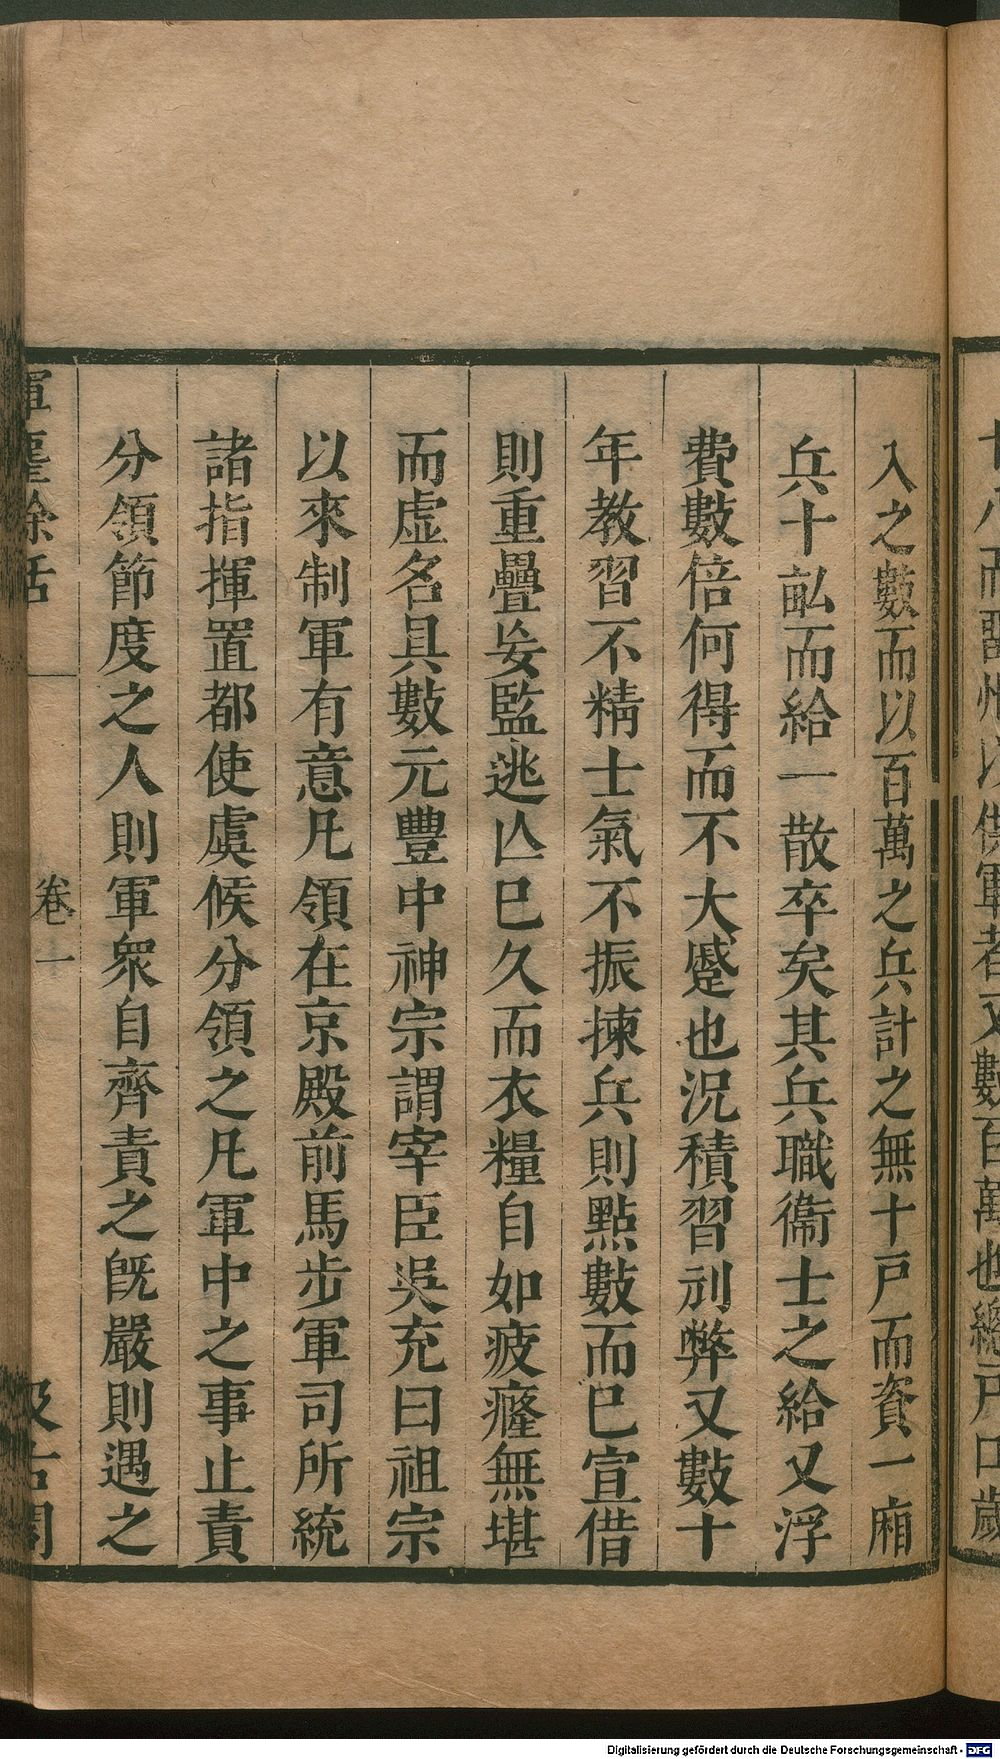 入之數而以百萬之兵計之無十戸而資一廂
兵十畝而給一散卒矣其兵職衞士之給又浮
費數倍何得而不大蹙也况積習刓弊又數十
年教習不精士氣不振揀兵則點數而巳宣借
則重疊妄監逃亾巳久而衣糧自如疲癃無堪
而虛名具數元豐中神宗謂宰臣吳充曰祖宗
以來制軍有意凡領在京殿前馬步軍司所統
諸指揮置都使虞候分領之凡軍中之事止責
分領節度之人則軍衆自齊責之旣嚴則遇之
揮麈餘話
卷一
汲古閣
Digitalisierung gefördert durch die Deutsche Forschungsgemeinschaft - DFG